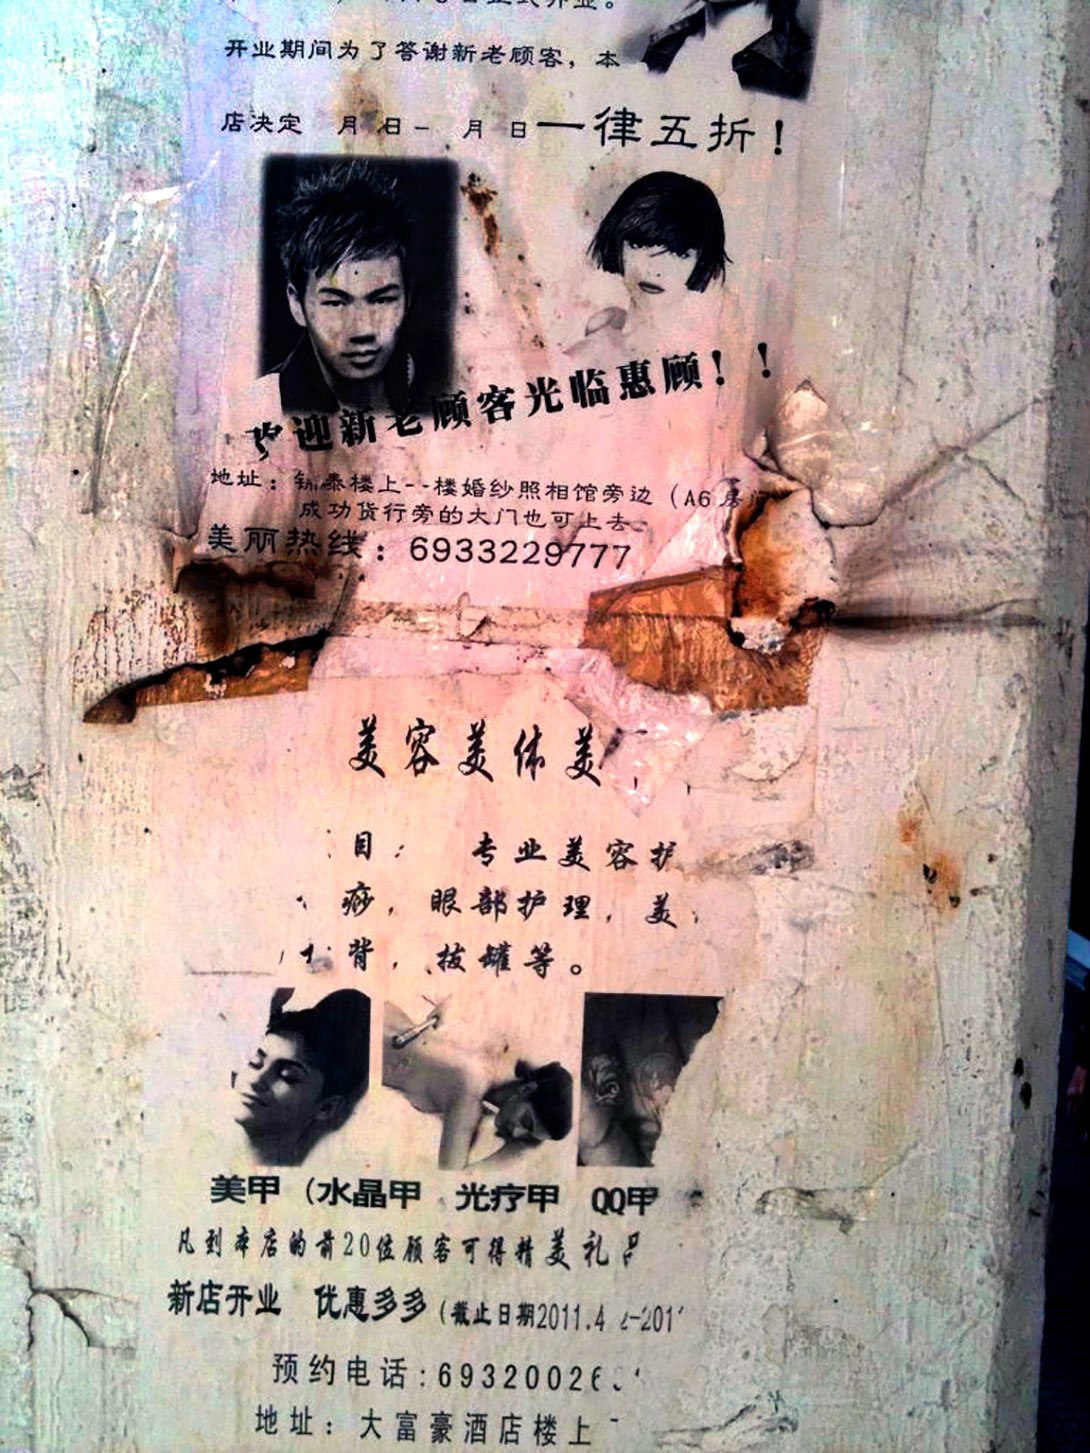 开业期间为了答谢新老顾客，本
店决定 月 日- 月 日一律五折！
欢迎新老顾客光临惠顾！！
地址： 泰楼上--楼婚纱照相馆旁边（A6房
成功货行旁的大门也可上去
美丽热线：6933229777
美容美体美
目： 专业美容护
痧，眼部护理，美
背，拔罐等。
美甲（水晶甲 光疗甲 QQ甲
凡到本店的前20位顾客可得精美礼
新店开业 优惠多多（截止日期2011.4 -201
预约电话:69320026
地址：大富豪酒店楼上